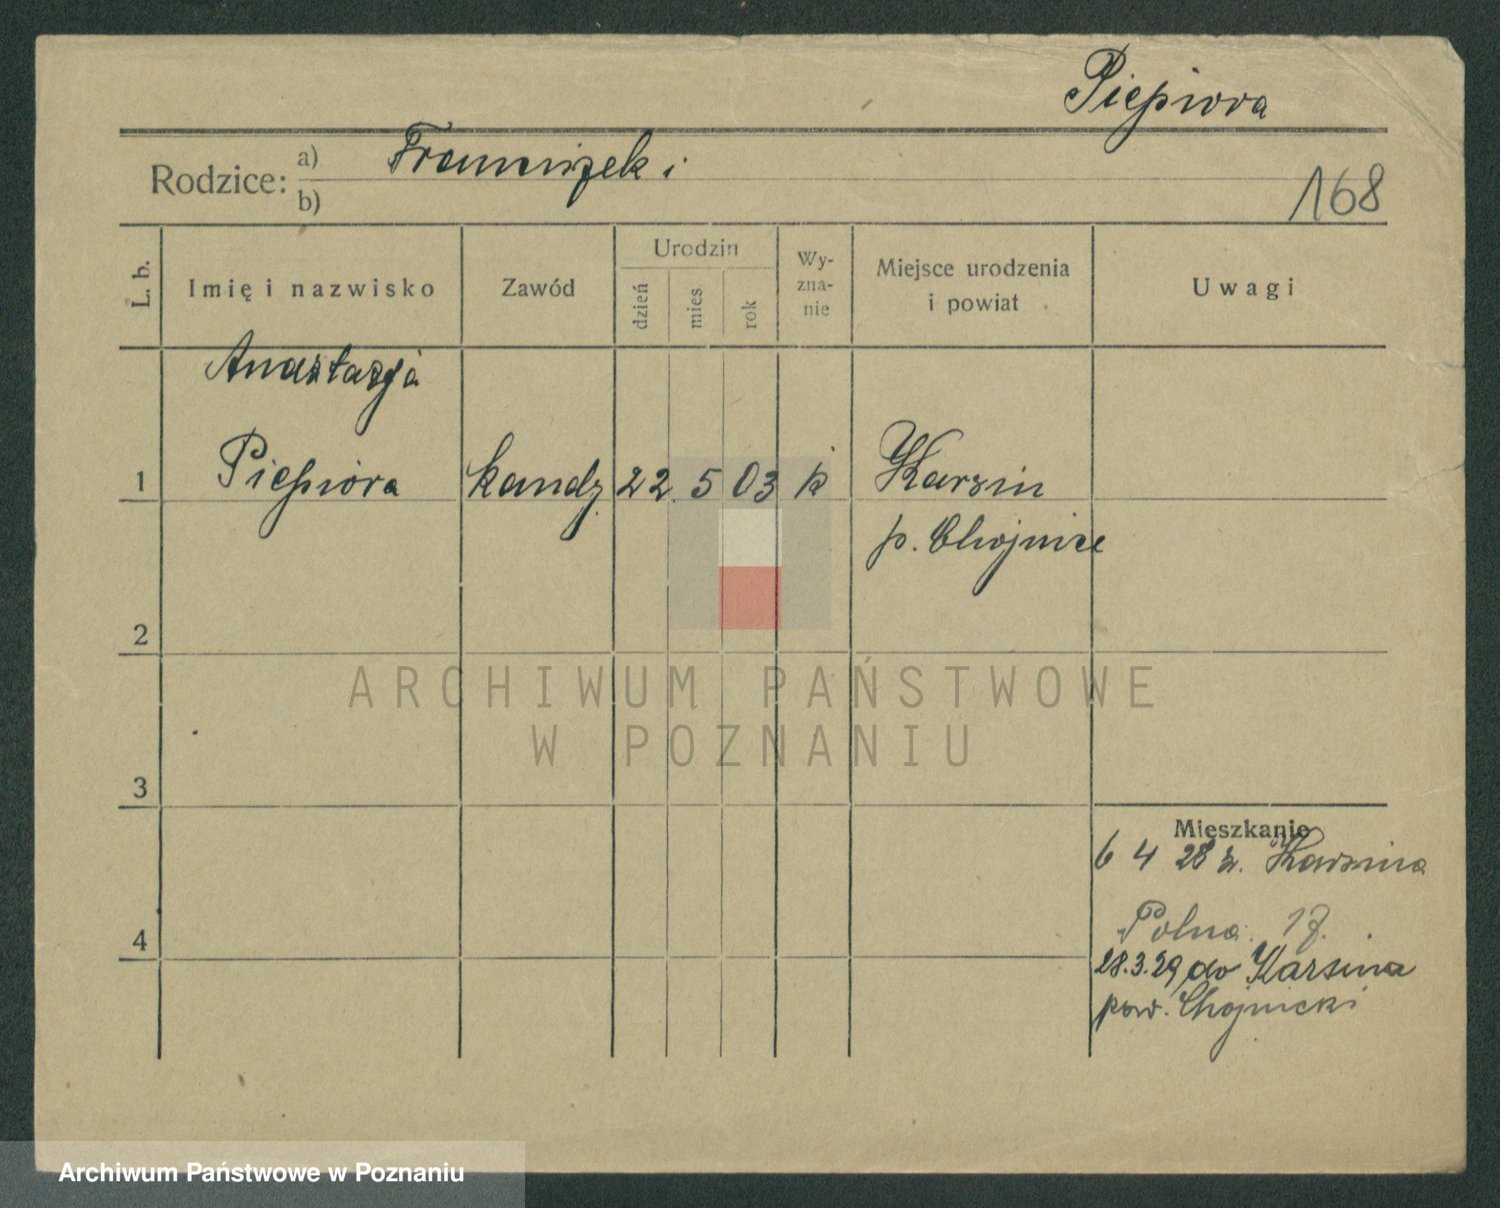 Piepiora
Rodzice: a) Franciszek i
b)
168
L. b.
Imię i nazwisko
Zawód
Urodzin
dzień
mies
rok
Wy-
zna-
nie
Miejsce urodzenia
i powiat
Uwagi
Anastazja
1 Piepióra kandz. 22. 5 03 k Karsin
p. Chojnice
2
3
4
Mieszkanie
6 4 28 z. Karsina
Polna 17.
28.3.29 do Karsina
pow. Chojnicki
ARCHIWUM PAŃSTWOWE
W POZNANIU
Archiwum Państwowe w Poznaniu